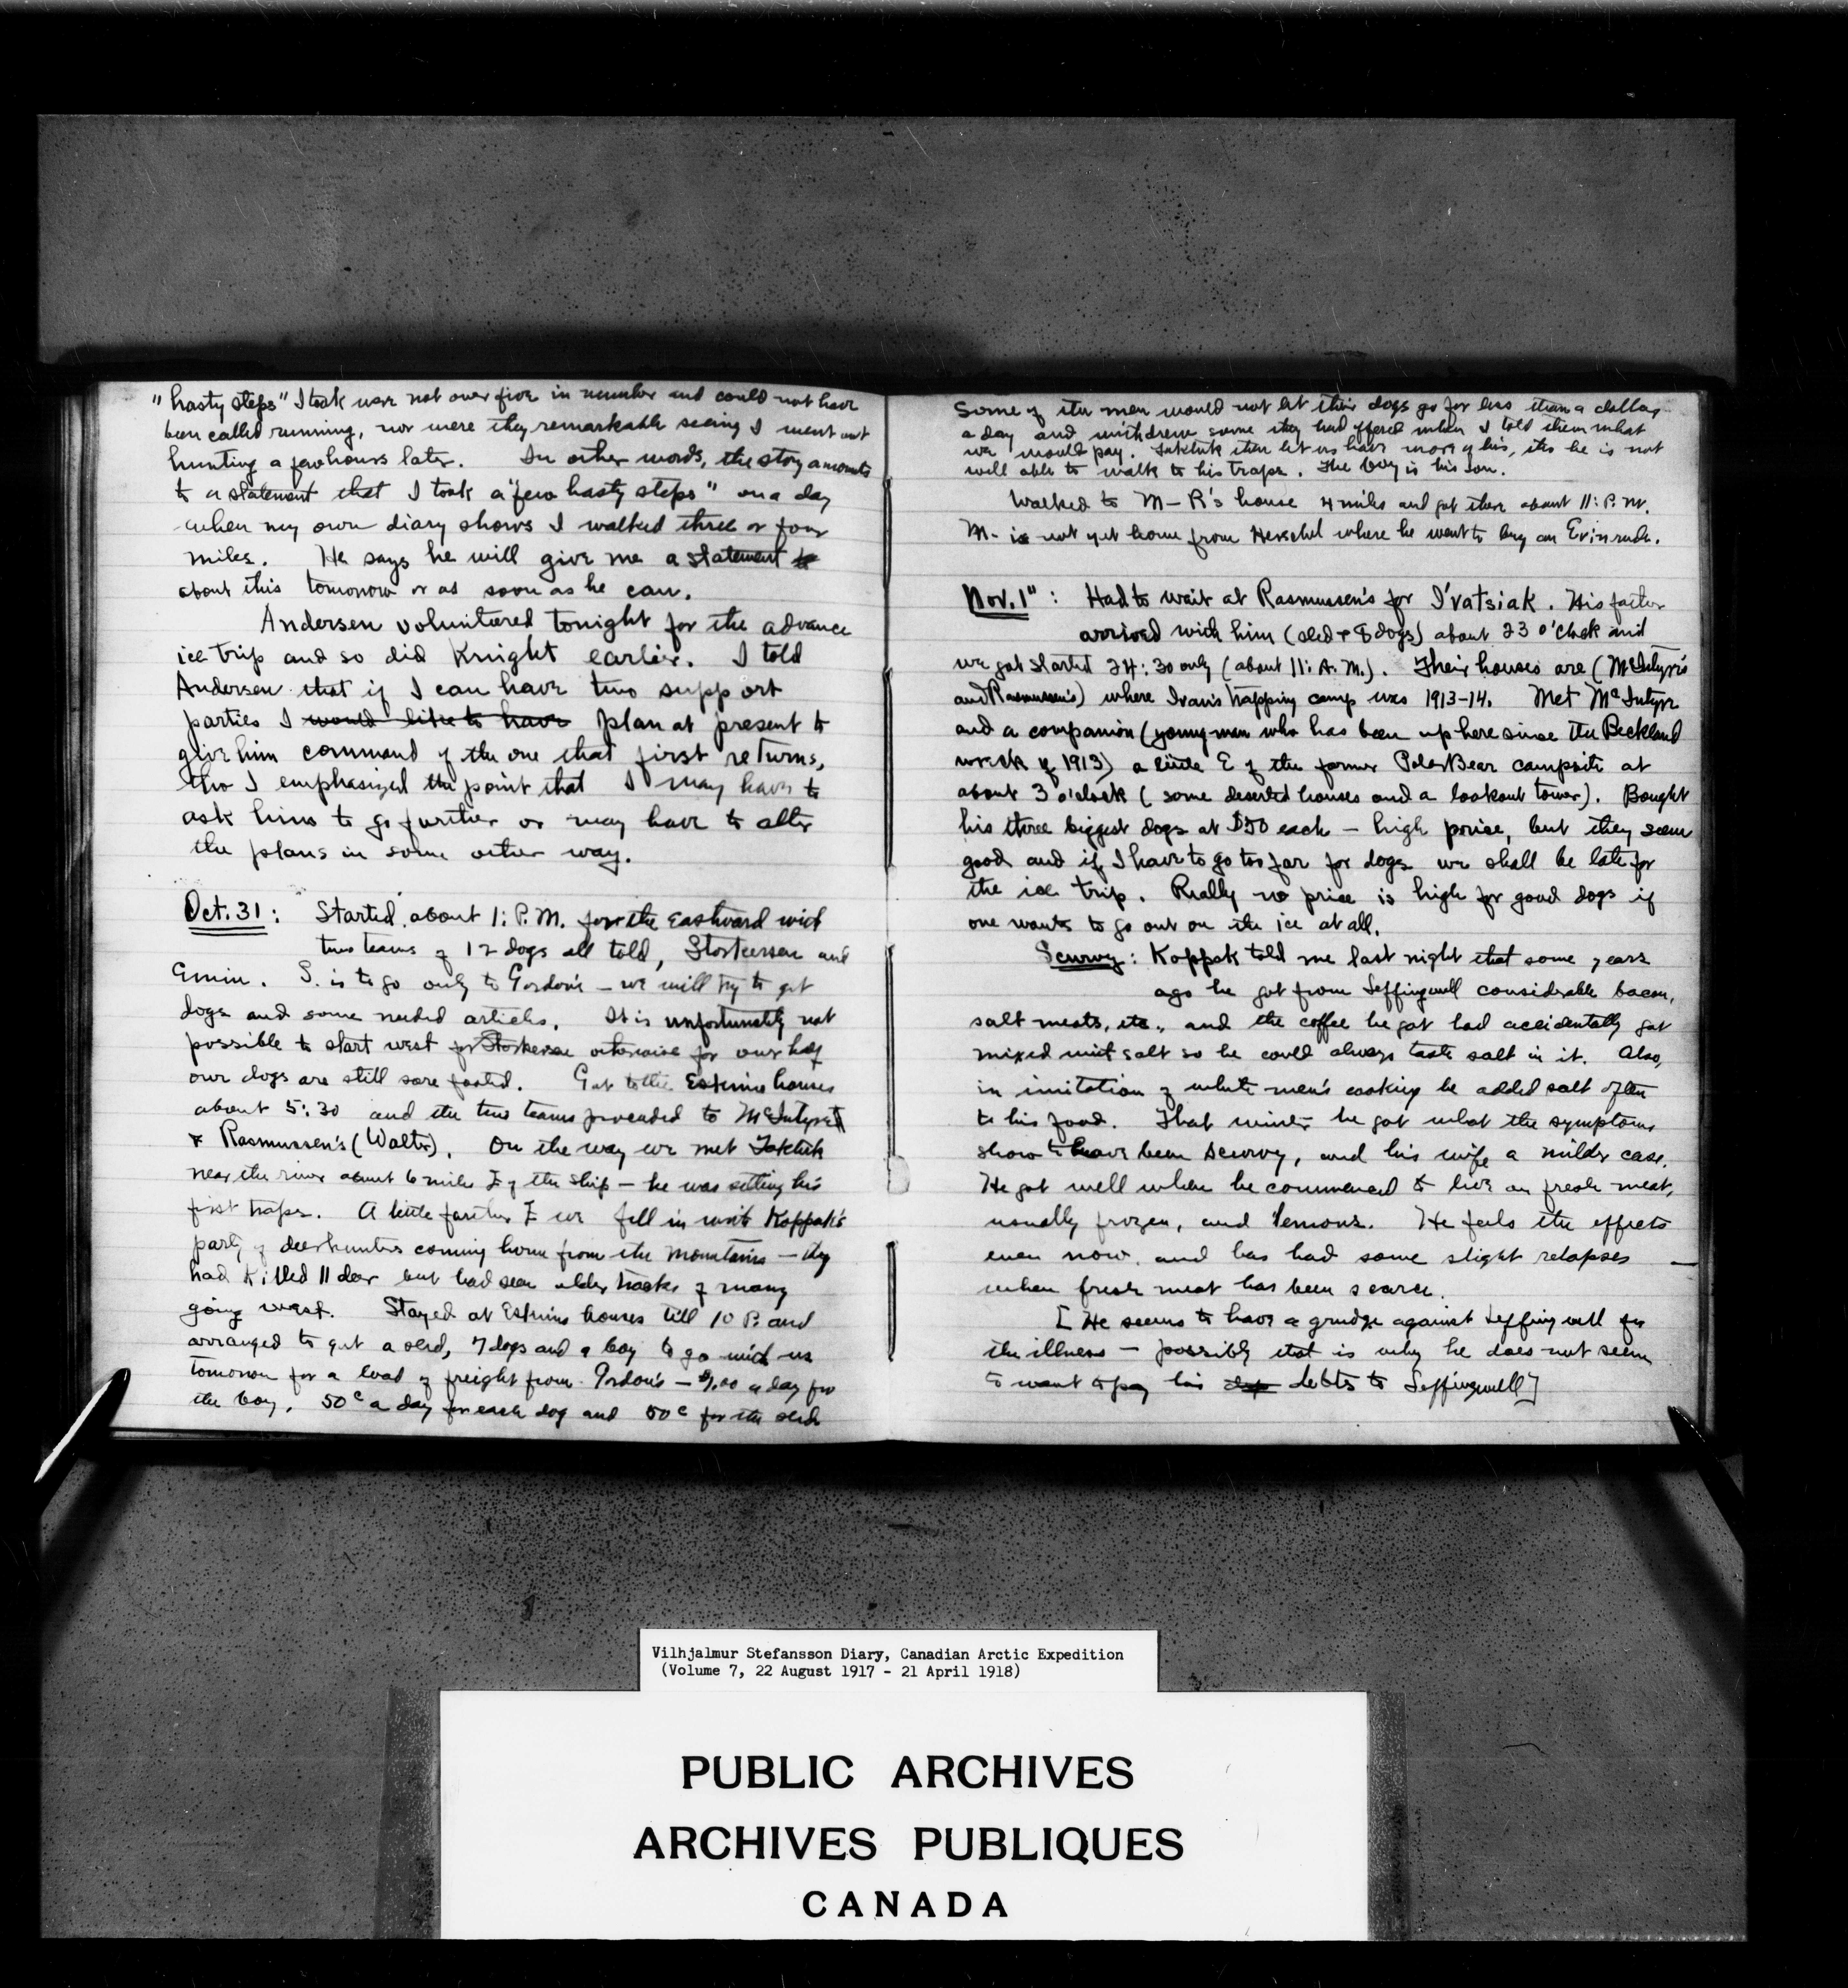 "hasty steps" I took were not over five in number and could not have
been called running, nor were they remarkable seeing I went out
hunting a few hours later. In other words, the story amounts
to a statement that I took a "few hasty steps" on a day
when my own diary shows I walked three or four
miles. He says he will give me a statement to
about this tomorrow or as soon as he can.
Andersen volunteered tonight for the advance
ice trip and so did Knight earlier. I told
Andersen that if I can have two support
parties I would like to have plan at present to
give him command of the one that first returns,
tho I emphasized the point that I may have to
ask him to go further or may have to alter
the plans in some other way.
Oct. 31: Started about 1: P.M. for the Eastward with
two teams of 12 dogs all told, Storkersen and
Emiu. S. is to go only to Gordon's — we will try to get
dogs and some needed articles. It is unfortunately not
possible to start west for Storkersen otherwise for our half
our dogs are still sore footed. Got to the Eskimo houses
about 5:30 and the two teams proceeded to McIntyre's
& Rasmussen's (Walter). On the way we met Taktuk
near the river about 6 miles E of the ship — he was setting his
first traps. A little farther E we fell in with Koppak's
party of deerhunters coming home from the mountains — they
had killed 11 deer but had seen older tracks of many
going west. Stayed at Eskimo houses till 10 P. and
arranged to get a sled, 7 dogs and a boy to go with us
tomorrow for a load of freight from Gordon's — $1.00 a day for
the boy, 50c a day for each dog and 50c for the sled
Some of the men would not let their dogs go for less than a dollar
a day and withdrew some they had offered when I told them what
we would pay. Taktuk then let us have more of his, tho he is not
well able to walk to his traps. The boy is his son.
Walked to M—R's house 4 miles and got there about 11: P.M.
M. is not yet home from Herschel where he went to buy an Evinrude.
Nov. 1": Had to wait at Rasmussen's for I'vatsiak. His father
arrived with him (sled + 8 dogs) about 23 o'clock and
we got started 24:30 only (about 11: A.M.). Their houses are (McIntyre's
and Rasmussen's) where Ivan's trapping camp was 1913-14. Met McIntyre
and a companion (young man who has been up here since the Beckland
wreck of 1913) a little E of the former Polar Bear campsite at
about 3 o'clock (some deserted houses and a lookout tower). Bought
his three biggest dogs at $50 each — high price, but they seem
good and if I have to go too far for dogs we shall be late for
the ice trip. Really no price is high for good dogs if
one wants to go out on the ice at all.
Scurvy: Koppak told me last night that some years
ago he got from Leffingwell considerable bacon,
salt meats, etc., and the coffee he got had accidentally got
mixed with salt so he could always taste salt in it. Also,
in imitation of white men's cooking he added salt often
to his food. That winter he got what the symptoms
show to have been scurvy, and his wife a milder case.
He got well when he commenced to live on fresh meat,
usually frozen, and lemons. He feels the effects
even now, and has had some slight relapses —
when fresh meat has been scarce.
[He seems to have a grudge against Leffingwell for
the illness — possibly that is why he does not seem
to want to pay his dep debts to Leffingwell]
Vilhjalmur Stefansson Diary, Canadian Arctic Expedition
(Volume 7, 22 August 1917 - 21 April 1918)
PUBLIC ARCHIVES
ARCHIVES PUBLIQUES
CANADA